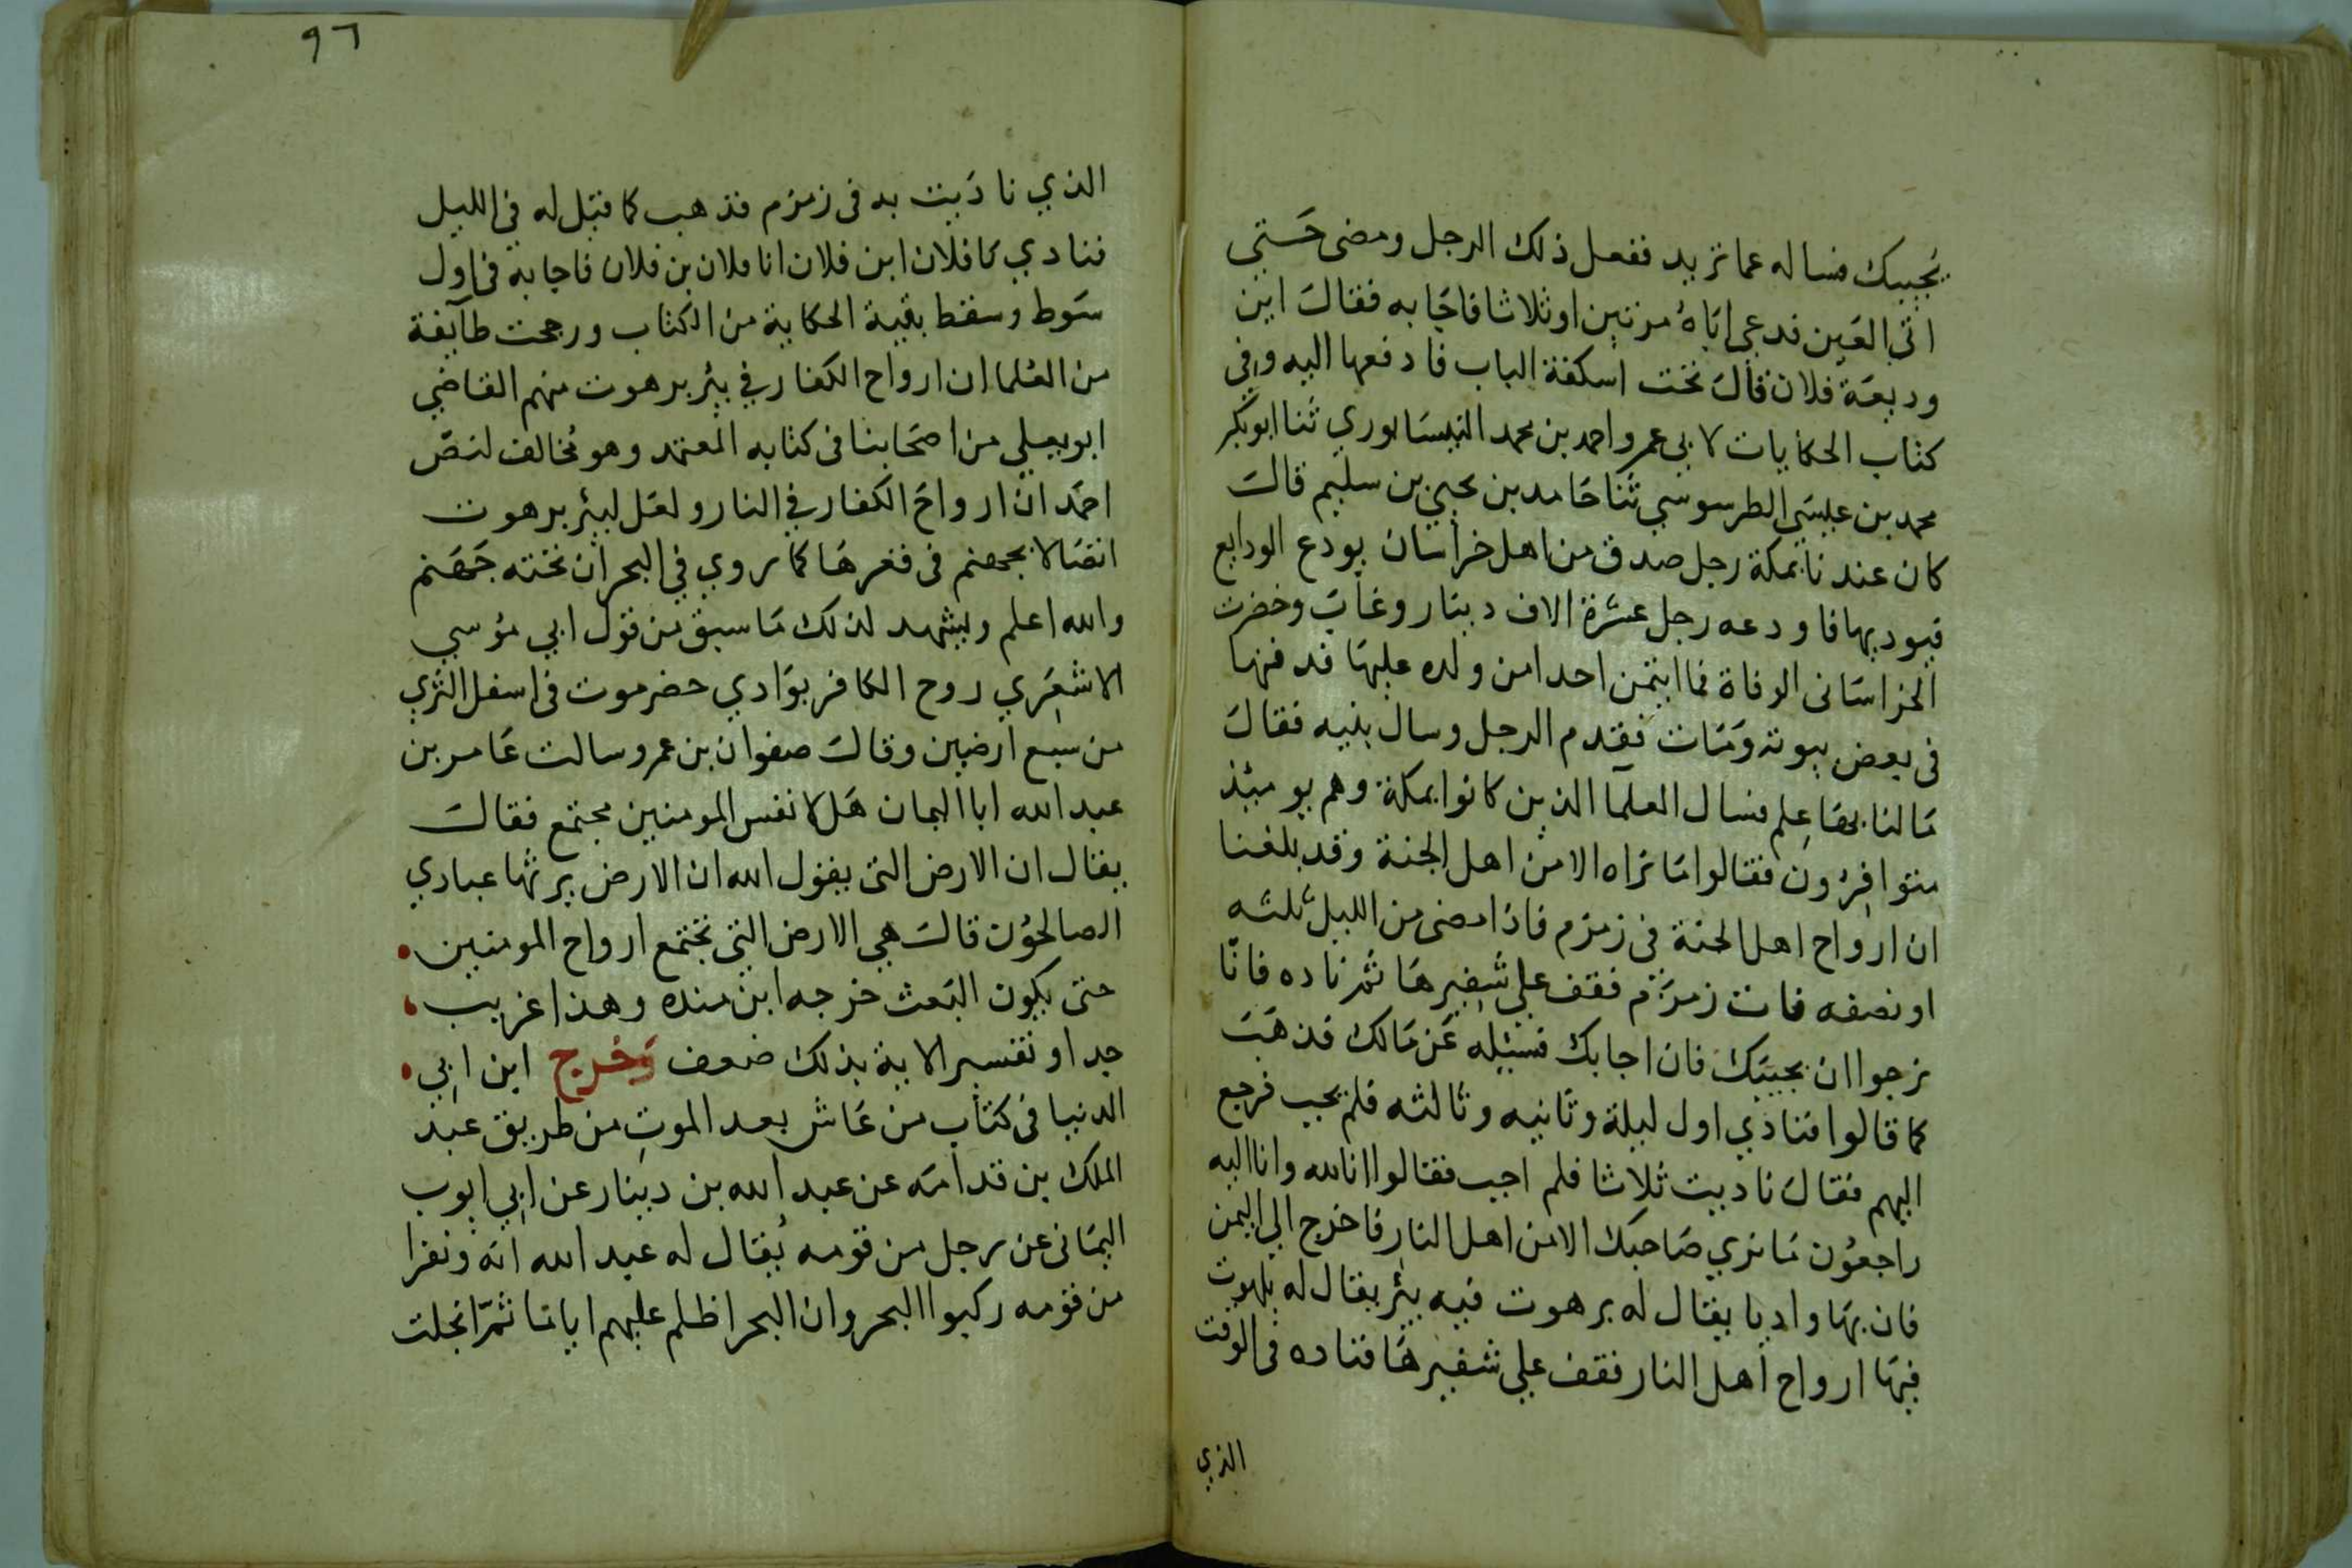 يجيبك فساله عما تريد ففعل ذلك الرجل ومضى حتي
اتي العين فدعي اباه مرتين او ثلاثا فاجابه فقال اين
وديعة فلان قال تحت اسكفة الباب فادفعها اليه وفي
كتاب الحكايات لابي عمرو احمد بن محمد النيسابوري ثنا ابو بكر
محمد بن عيسي الطرسوسي ثنا حامد بن يحيي بن سليم قال
كان عندنا بمكة رجل صدق من اهل خراسان يودع الودايع
فيوديها فاودعه رجل عشرة الاف دينار وغاب وحضرت
الخراساني الوفاة فما ايتمن احدا من ولده عليها فدفنها
في بعض بيوته ومات فقدم الرجل وسال بنيه فقال
مالنا بها علم فسال العلما الذين كانوا بمكة وهم يوميئذ
متوافرون فقالوا ما نراه الا من اهل الجنة وقد بلغنا
ان ارواح اهل الجنة في زمزم فاذا مضى من الليل ثلثه
او نصفه فات زمزم فقف علي شفيرها ثم ناده فانا
نرجوا ان يجيبك فان اجابك فسيله عن مالك فذهب
كما قالوا فنادي اول ليلة وثانيه وثالثه فلم يجب فرجع
اليهم فقال ناديت ثلاثا فلم اجب فقالوا انا لله وانا اليه
راجعون ما نري صاحبك الا من اهل النار فاخرج الي اليمن
فان بها واديا يقال له برهوت فيه بئر يقال له بلهوت
فيها ارواح اهل النار فقف علي شفيرها فناده في الوقت
الذي
٩٦
الذي ناديت به في زمزم فذهب كما قيل له في الليل
فنادي يا فلان ابن فلان انا فلان بن فلان فاجابه في اول
سوط وسقط بقية الحكاية من الكتاب ورجحت طآيفة
من العلما ان ارواح الكفار في بئر برهوت منهم القاضي
ابو يعلي من اصحابنا في كتابه المعتمد وهو مخالف لنص
احمد ان ارواح الكفار في النار ولعل لبئر برهوت
اتصالا بجهنم في قعرها كما روي في البحر ان تحته جهنم
والله اعلم ويشهد لذلك ما سبق من قول ابي موسي
الاشعري روح الكافر بوادي حضرموت في اسفل الثري
من سبع ارضين وقال صفوان بن عمرو سالت عامر بن
عبد الله ابا اليمان هل لانفس المومنين مجتمع فقال
يقال ان الارض التي يقول الله ان الارض يرثها عبادي
الصالحون قال هي الارض التي تجتمع ارواح المومنين
حتى يكون البعث خرجه ابن منده وهذا غريب
جدا وتفسير الاية بذلك ضعف وخرج ابن ابي
الدنيا في كتاب من عاش بعد الموت من طريق عبد
الملك بن قدامه عن عبد الله بن دينار عن ابي ايوب
اليماني عن رجل من قومه يقال له عبد الله انه ونفرا
من قومه ركبوا البحر وان البحر اظلم عليهم اياما ثم انجلت